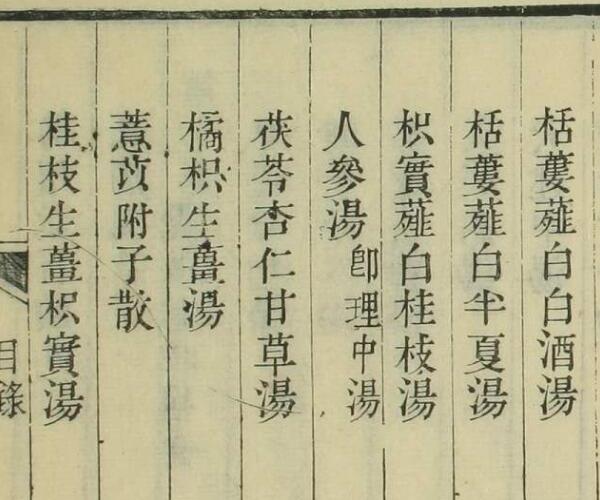 栝蔞薤白白酒湯
栝蔞薤白半夏湯
枳實薤白桂枝湯
人參湯 卽理中湯
茯苓杏仁甘草湯
橘枳生薑湯
薏苡附子散
桂枝生薑枳實湯
目錄